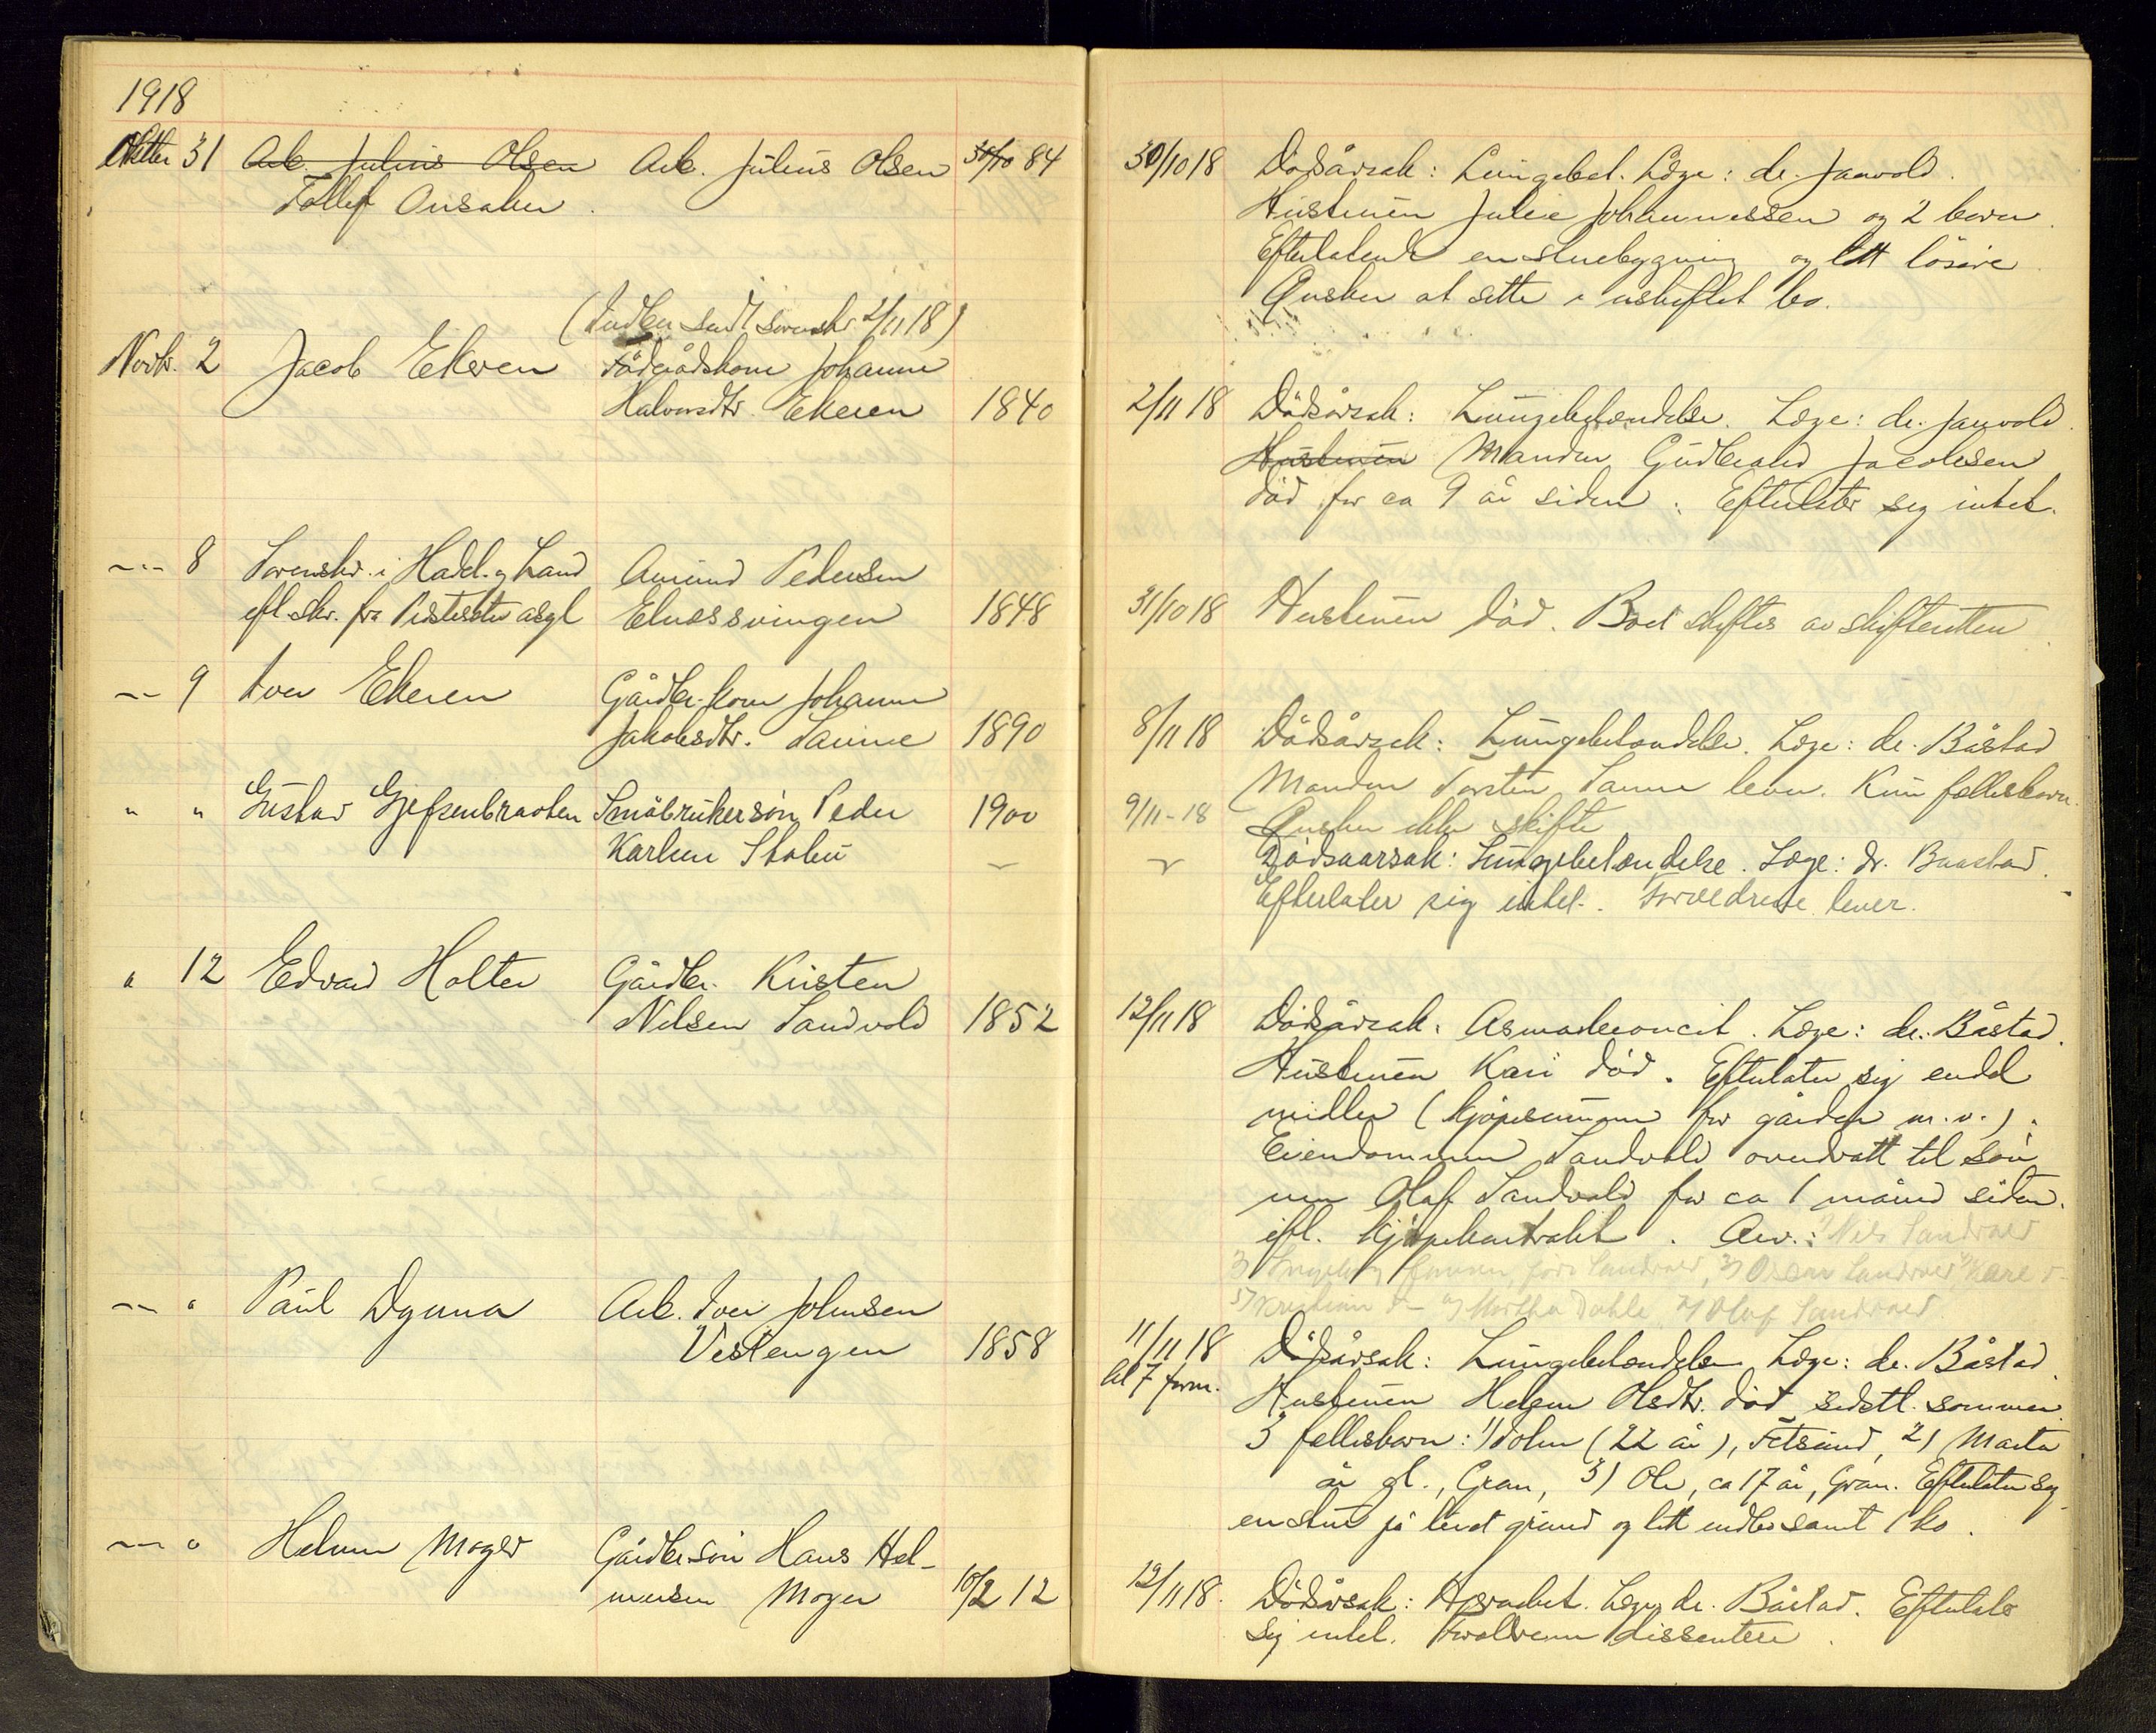 1918
Oktbr 31 Arb. Julius Olsen Arb. Julius Olsen 30/10 84 30/10 18 Dødsårsak: Lungebet. Læge: dr. Jarvold.
Tollef Onsaker. Hustruen Julie Johannessen og 2 barn.
Efterlatende en stuebygning og litt løsøre
Ønsker at sitte i uskiftet bo.
(Indber. sendt sorenskr. 2/11 18)
Novbr. 2 Jacob Ekeren Føderådskone Johanne
Halvorsdtr. Ekeren 1840 2/11 18 Dødsårsak: Lungebetændelse. Læge: dr. Jarvold.
Hustruen Manden Gudbrand Jacobsen
død for ca 9 år siden. Efterlater seg intet.
—"— 8 Sorenskr. i Hadel. og Land Amund Pedersen
efl. skr. fra asyl Elnessvingen 1848 31/10 18 Hustruen død. Boet skiftes av skifteretten.
—"— 9 Iver Ekeren Gårdbr. kone Johanne
Jakobsdtr. Sanne 1890 8/11 18 Dødsårsak: Lungebetændelse. Læge: dr. Båstad
Manden Torsten Sanne lever. Kun fællesbarn.
Ønsker ikke skifte
" " Gustav Gjefsenbraaten Småbrukersøn Peder 1900 9/11-18
Karlsen Stubu — Dødsaarsak: Lungebetændelse. Læge: dr. Baastad.
Efterlater sig intet. Forældrene lever.
" 12 Edvard Holter Gårdbr. Kristen
Nilsen Sandvold 1852 12/11 18 Dødsårsak: Læge: dr. Båstad.
Hustruen Kari død. Efterlater sig endel
midler (kjøpesummen for gården m.v.).
Eiendommen Sandvold overdratt til søn
nen Olaf Sandvold for ca 1 måned siden.
efl. kjøpekontrakt. Arv.: 1) Nils Sandvold
2) Ingeborg født Sandvold, 3) Oscar Sandvold 4) Kare d—
5) Kristian d— 6) Martha Dahle, 7) Olaf Sandvold
—"— " Paul Dynna Arb. Iver Johnsen
Vestengen 1858 11/11 18 Dødsårsak: Lungebetændelse Læge: dr. Båstad.
kl 7 form. Hustruen Helene Olsdtr. død sidstl. sommer.
3 fellesbarn: 1) John (22 år), Fetsund, 2) Marta
år gl., Gran, 3) Ole, ca 17 år, Gran. Efterlater seg
en stue på leiet grund og litt indbo samt 1 ko.
—"— " Helmer Moger Gårdbr.søn Hans Hel-
mersen Moger 10/2 12 12/11 18. Dødsårsak: Læge dr. Båstad. Efterlater
sig intet. Forældrene dissentere.